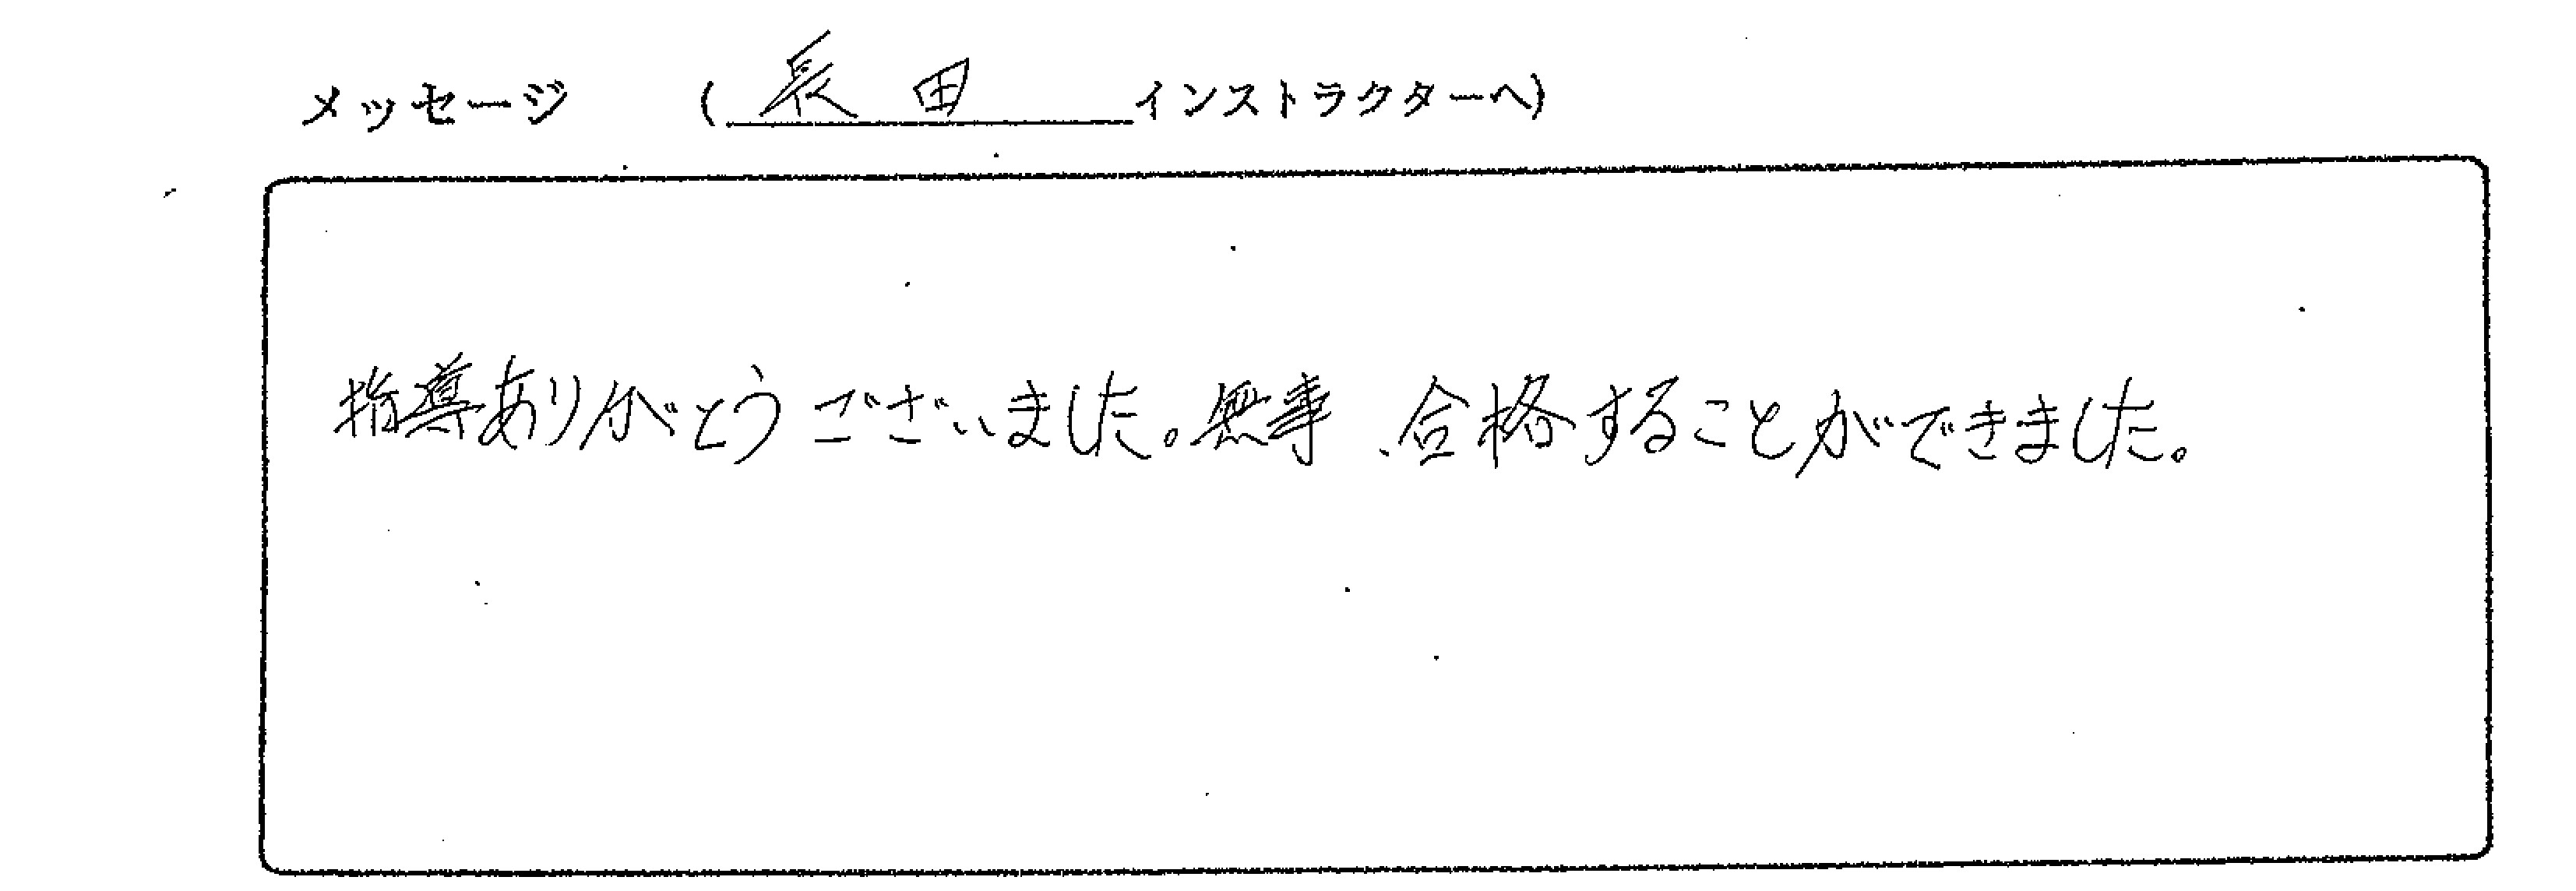 メッセージ (長田インストラクターへ)
指導ありがとうございました。無事、合格することができました。